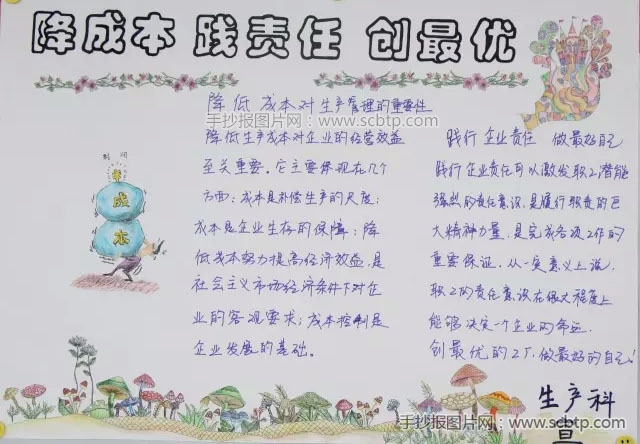 降成本 践责任 创最优
降低成本对生产管理的重要性
手抄报图片网：www.scbtp.com
降低生产成本对企业的经营效益
至关重要。它主要体现在几个
方面：成本是补偿生产的尺度；
成本是企业生存的保障；降
低成本努力提高经济效益，是
社会主义市场经济条件下对企
业的客观要求；成本控制是
企业发展的基础。
利润
成
本
践行企业责任 做最好自己
践行企业责任可以激发职工潜能
强烈的责任意识，是履行职责的巨
大精神力量，是完成各项工作的
重要保证。从一定意义上说，
职工的责任意识在很大程度上
能够决定一个企业的命运。
创最优的工厂，做最好的自己！
生产科
手抄报图片网：www.scbtp.com